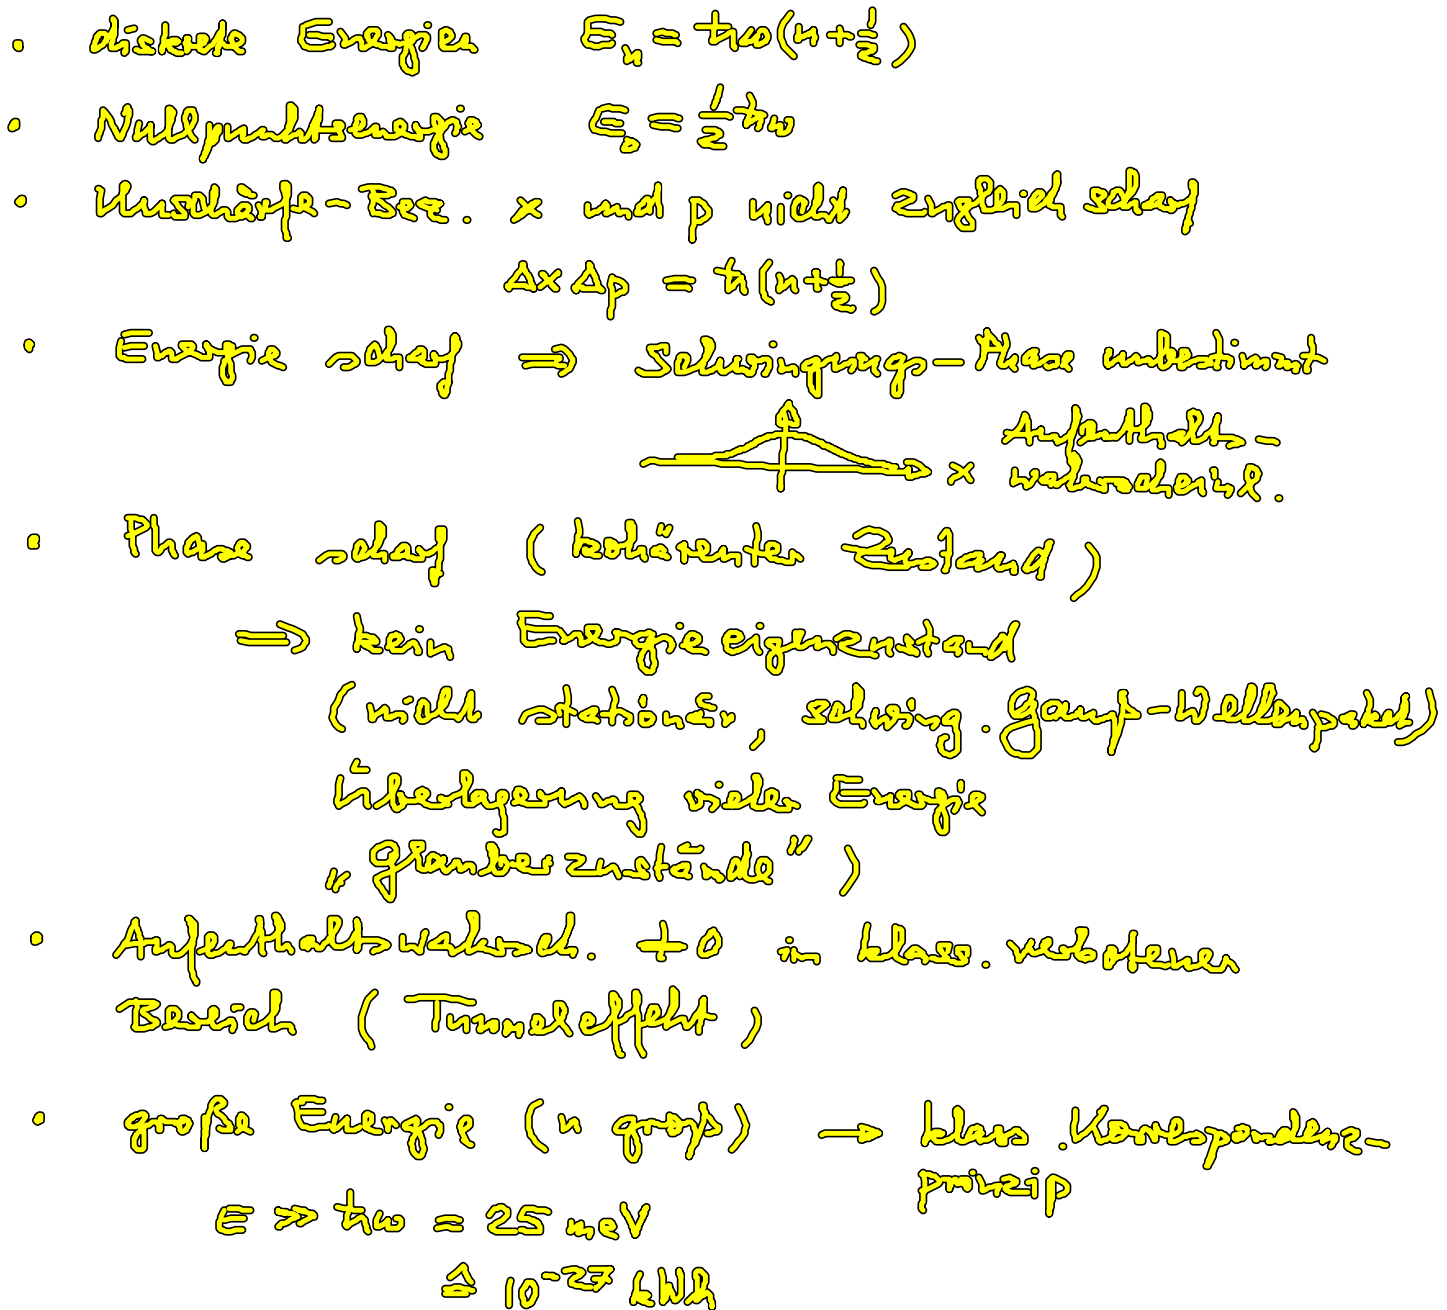 • diskrete Energien Eₙ = ħω(n+½)
• Nullpunktsenergie E₀ = ½ħω
• Unschärfe-Bez. x und p nicht zugleich scharf
Δx Δp = ħ(n+½)
• Energie scharf ⇒ Schwingungs-Phase unbestimmt
x Aufenthalts-
wahrscheinl.
• Phase scharf (kohärenter Zustand)
⇒ kein Energieeigenzustand
(nicht stationär, schwing. Gauß-Wellenpaket)
Überlagerung vieler Energie
„Glauberzustände")
• Aufenthaltswahrsch. ≠0 in klass. verbotenen
Bereich (Tunneleffekt)
• große Energie (n groß) → klass. Korrespondenz-
prinzip
E ≫ ħω = 25 meV
≙ 10⁻²⁷ kWh